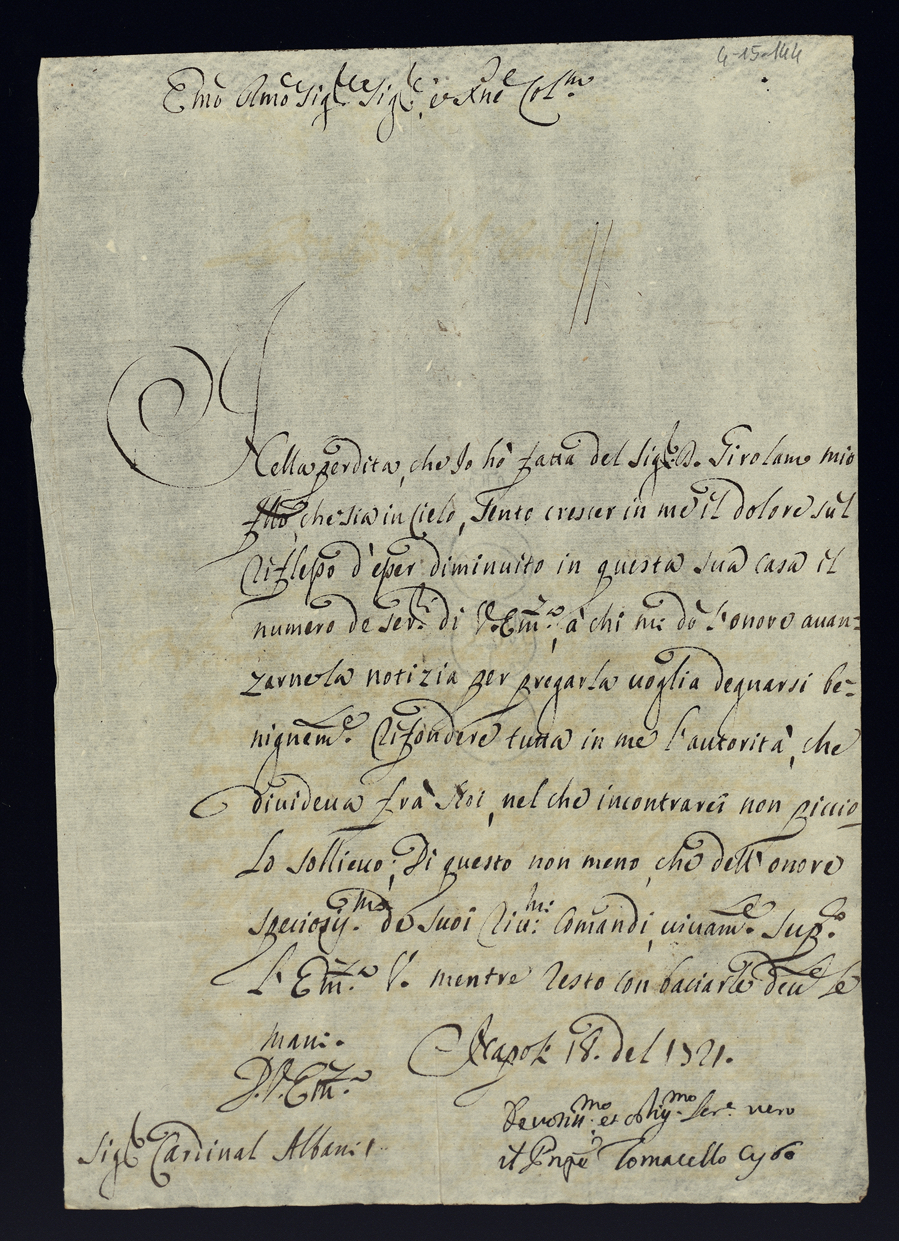 4-15-144
Emo Rmo Sig.re Sig.r, e Pne Col.mo
Nella perdita, che Io hò fatta del Sig.r D. Girolamo mio
fllo, che sia in Cielo, sento crescer in me il dolore sul
riflesso d'esser diminuito in questa sua casa il
numero de ser.ri di V. Em.za, à chi mi dò l'onore auan=
zarne la notizia per pregarla uoglia degnarsi be=
nignem.e rifondere tutta in me l'autorità, che
diuideua frà Noi, nel che incontrarei non piccio=
lo sollieuo; Di questo non meno, che dell'onore
speciosiss.mo de suoi riu.mi Comandi, uiuam.e sup.co
l'Em.za V. mentre resto con baciarle deu.e le
mani. Napoli 18. del 1721.
D. V. Em.za
Deuotiss.mo et oblig.mo Ser.e vero
Sig.r Cardinal Albani
il Pnpe Tomacello Cybo